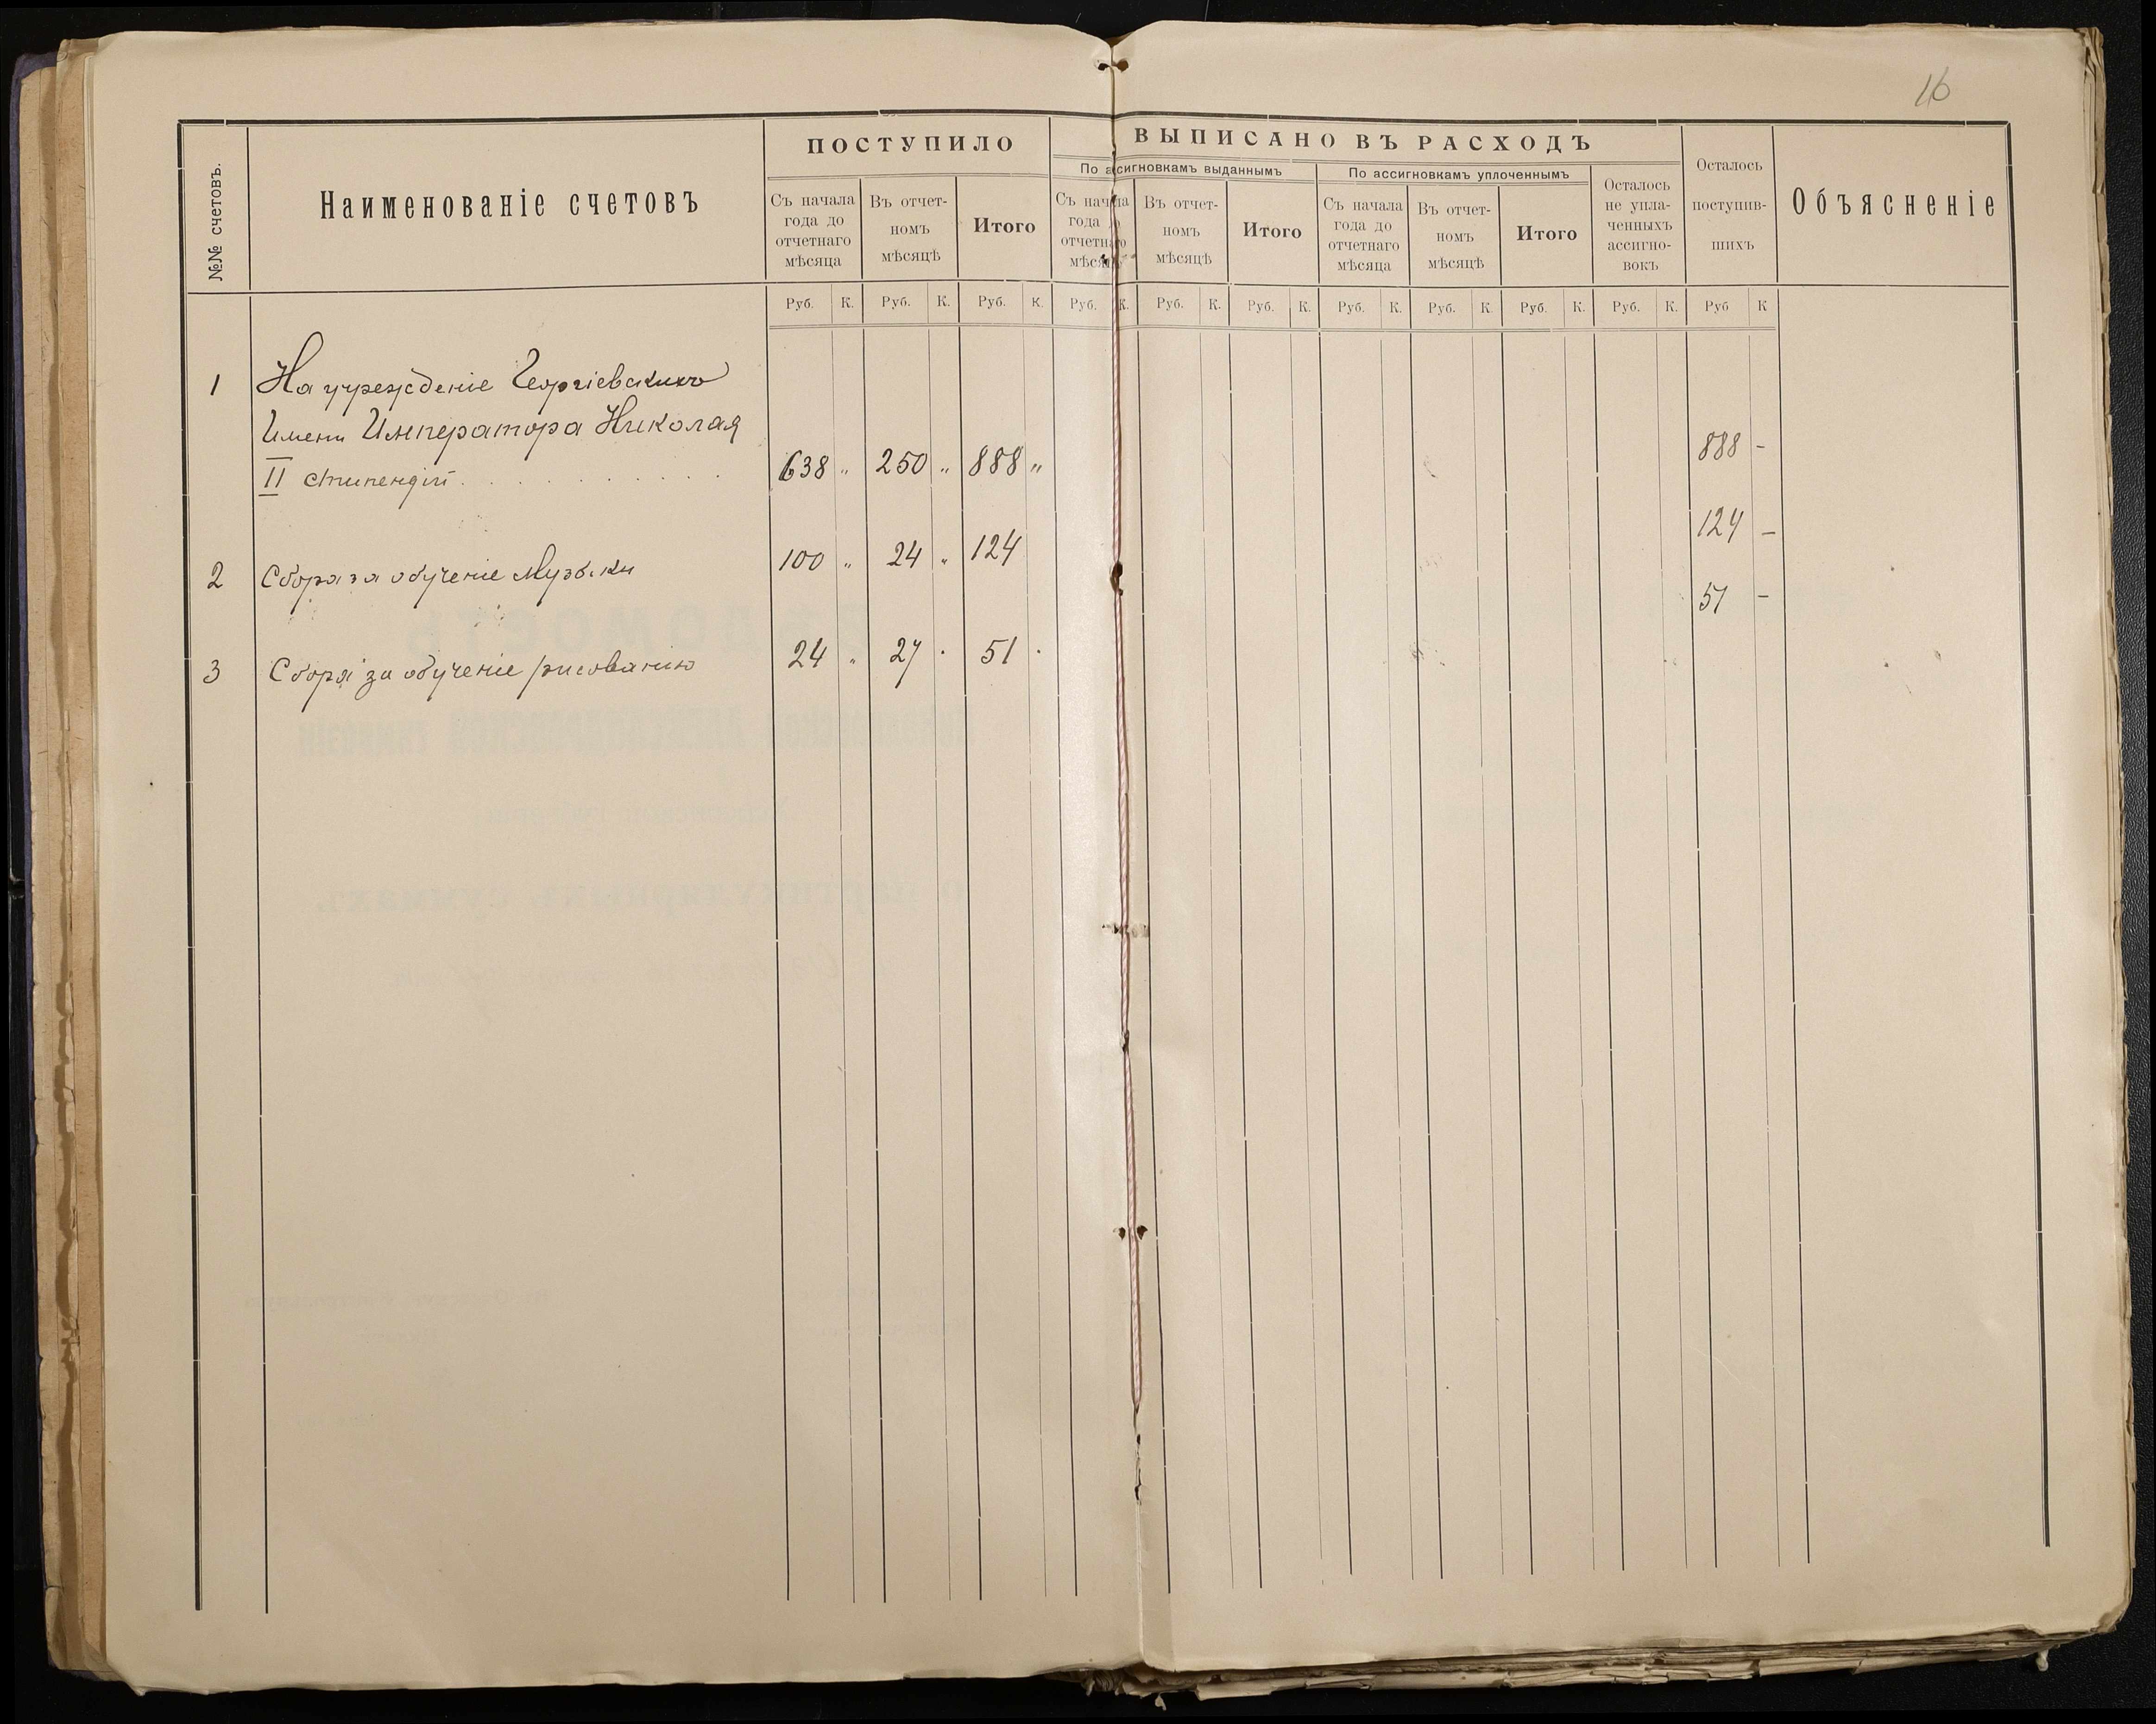 16
№№ счетовъ.
Наименованіе счетовъ
ПОСТУПИЛО
Съ начала
года до
отчетнаго
мѣсяца
Въ отчет-
номъ
мѣсяцѣ
Итого
ВЫПИСАНО ВЪ РАСХОДЪ
По ассигновкамъ выданнымъ
Съ начала
года до
отчетнаго
мѣсяца
Въ отчет-
номъ
мѣсяцѣ
Итого
По ассигновкамъ уплоченнымъ
Съ начала
года до
отчетнаго
мѣсяца
Въ отчет-
номъ
мѣсяцѣ
Итого
Осталось
не упла-
ченныхъ
ассигно-
вокъ
Осталось
поступив-
шихъ
Объясненіе
Руб. К. Руб. К. Руб. К. Руб. К. Руб. К. Руб. К. Руб. К. Руб. К. Руб. К. Руб. К. Руб К
1 На учрежденіе Георгіевскихъ
Имени Императора Николая
II стипендій . . . . . . . . . . 638 „ 250 „ 888 „ 888 -
2 Сбора за обученіе Музыки 100 „ 24 „ 124 124 -
3 Сбора за обученіе рисованію 24 „ 27 . 51 . 51 -